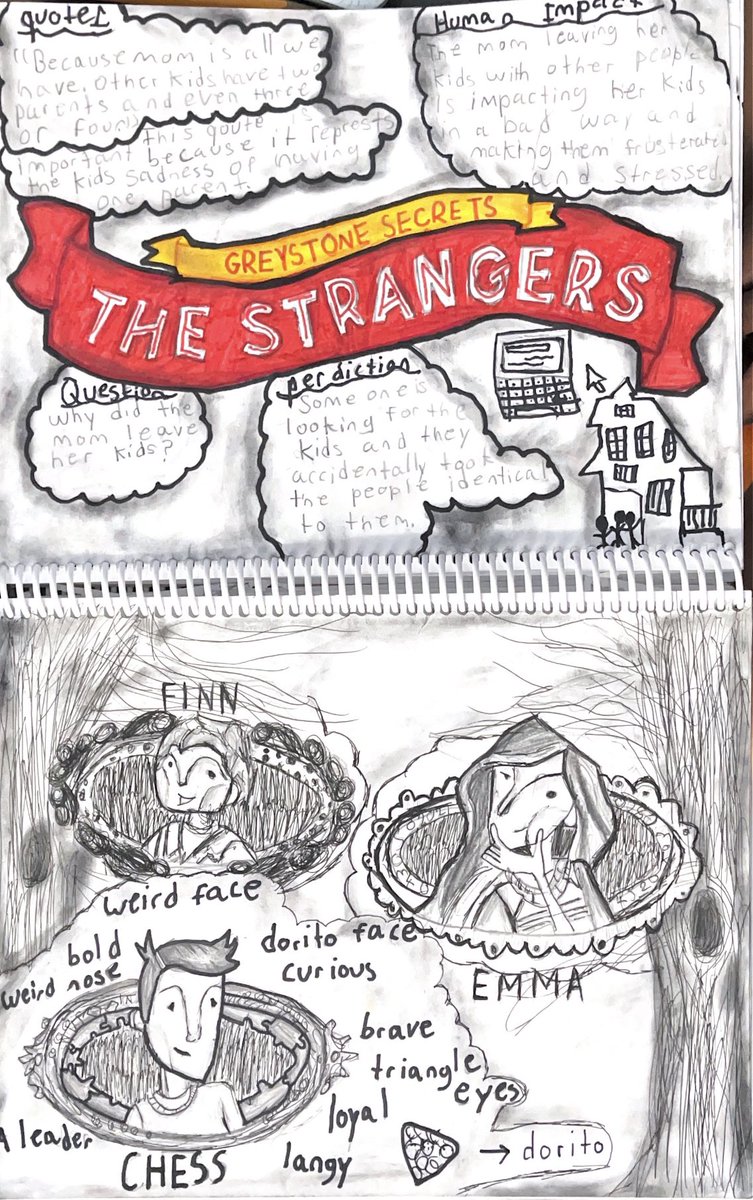 quotes
"Because mom is all we
have. Other kids have two
parents and even three
or four" This quote is
important because it represts
the kids sadness of having
one parent.
Human Impact
The mom leaving her
kids with other people
is impacting her kids
in a bad way and
making them frusterated
and stressed.
GREYSTONE SECRETS
THE STRANGERS
Question
Why did the
mom leave
her kids?
perdiction
Some one is
looking for the
kids and they
accidentally took
the people identical
to them.
FINN
EMMA
weird face
bold
weird nose
dorito face
curious
brave
triangle
eyes
loyal
langy
A leader
CHESS
→ dorito